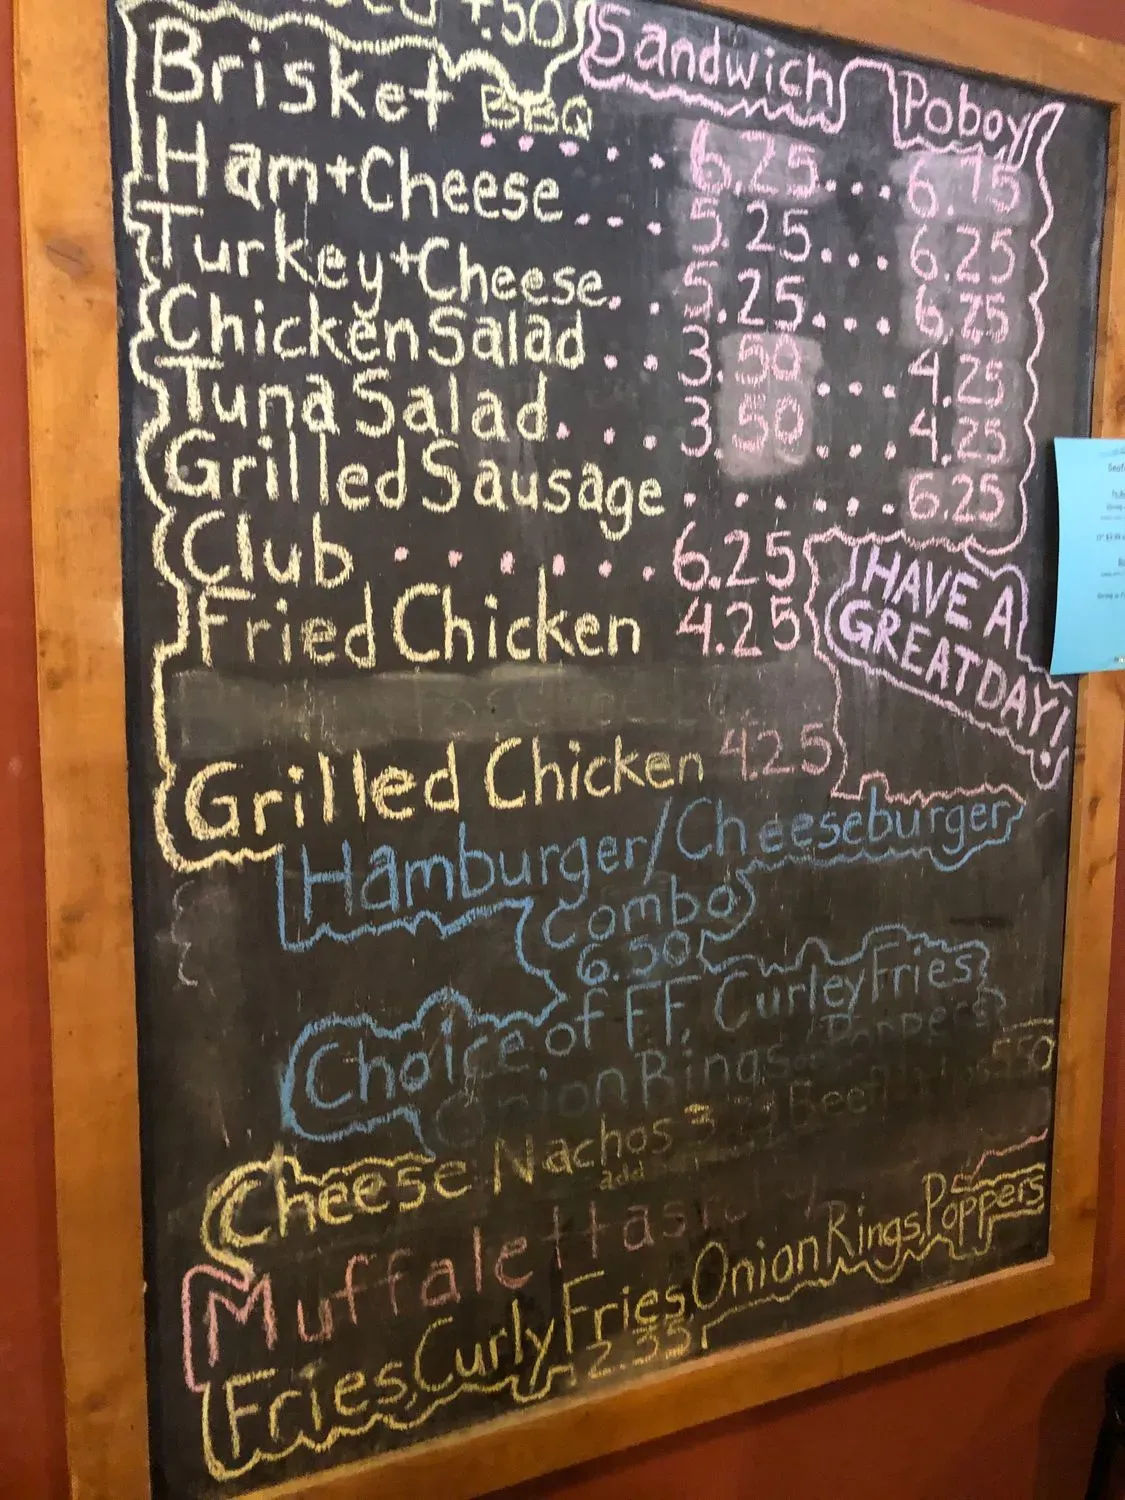 +.50
Sandwich Poboy
Brisket BBQ 6.25 6.75
Ham+Cheese 5.25 6.25
Turkey+Cheese 5.25 6.25
Chicken Salad 3.50 4.25
Tuna Salad 3.50 4.25
Grilled Sausage 6.25
Club 6.25
Fried Chicken 4.25
HAVE A
GREAT DAY!
Grilled Chicken 4.25
Hamburger/Cheeseburger
Combo
6.50
Choice of FF, Curley Fries,
Onion Rings or Poppers
Cheese Nachos 3 add Beef 5.50
Muffalettas
Fries, Curly Fries, Onion Rings, Poppers
2.35